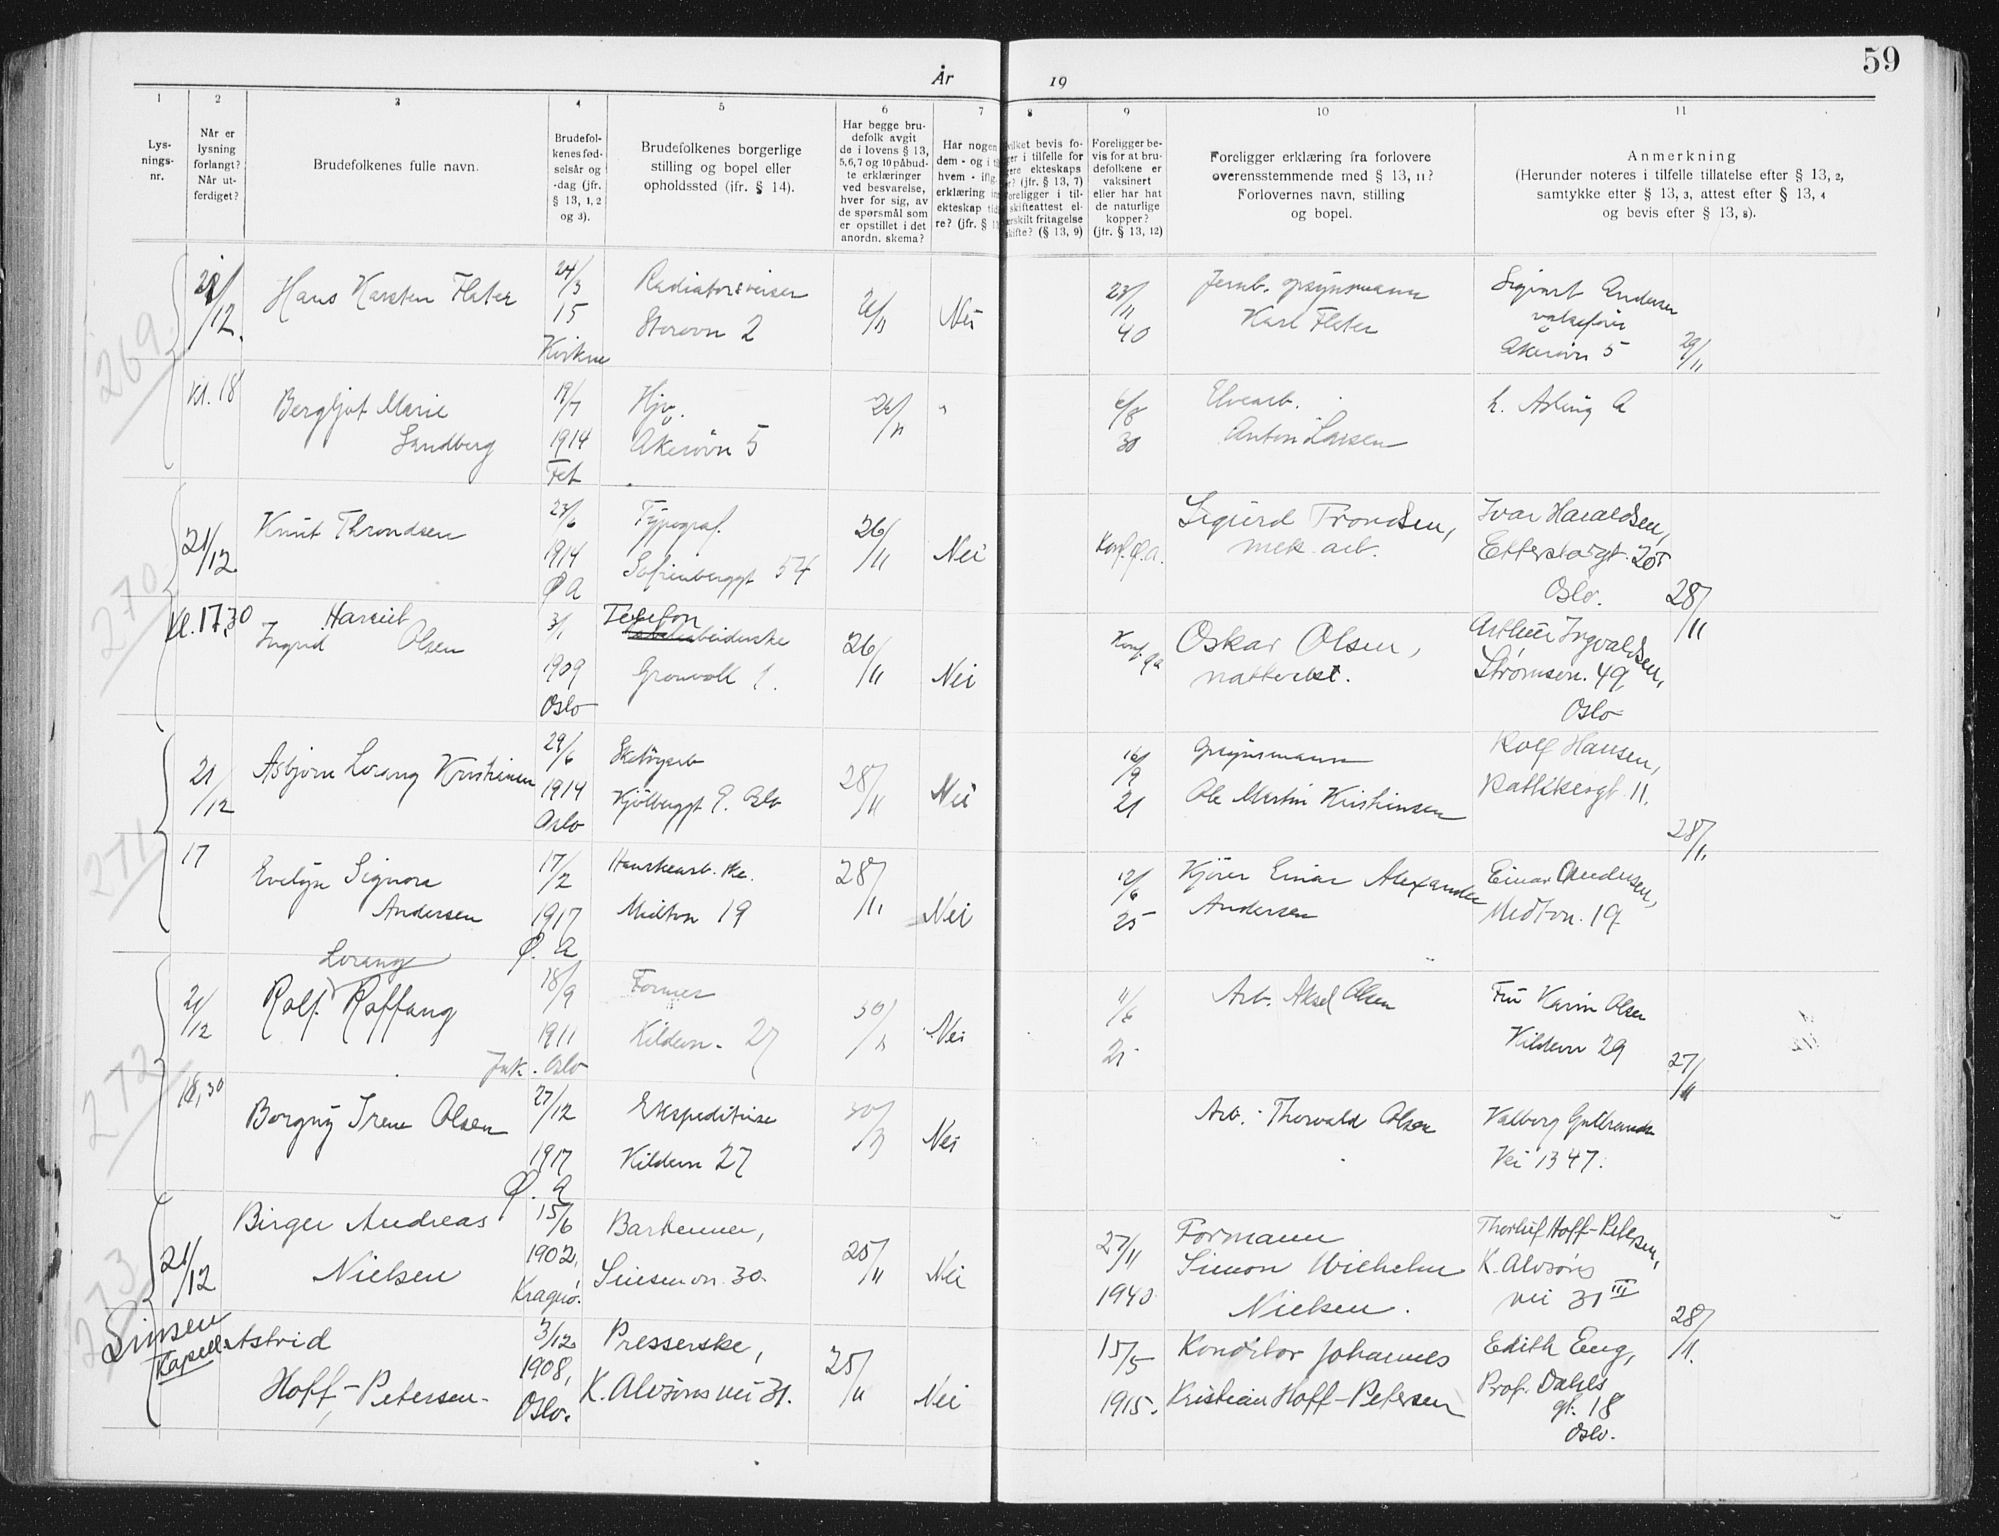 59
År
19
1 2 3 4 5 6 7 8 9 10 11
Lys-
nings-
nr.
Når er
lysning
forlangt?
Når ut-
ferdiget?
Brudefolkenes fulle navn.
Brudefol-
kenes fød-
selsår og
-dag (jfr.
§ 13, 1, 2
og 3).
Brudefolkenes borgerlige
stilling og bopel eller
opholdssted (jfr. § 14).
Har begge bru-
defolk avgit
de i lovens § 13,
5, 6, 7 og 10 påbud-
te erklæringer
ved besvarelse,
hver for sig, av
de spørsmål som
er opstillet i det
anordn. skema?
Har nogen
dem - og i ti
hvem - iflg.
erklæring in
ekteskap tid
re? (jfr. § 1
vilket bevis fo-
ger i tilfelle for
gere ekteskaps
er? (jfr. § 13, 7)
Foreligger i til-
skifteattest el-
ærskilt fritagelse
skifte? (§ 13, 9)
Foreligger be-
vis for at bru-
defolkene er
vaksinert
eller har hat
de naturlige
kopper?
(jfr. § 13, 12)
Foreligger erklæring fra forlovere
overensstemmende med § 13, 11?
Forlovernes navn, stilling
og bopel.
Anmerkning
(Herunder noteres i tilfelle tillatelse efter § 13, 2,
samtykke etter § 13, 3, attest efter § 13, 4
og bevis efter § 13, 8).
269
21/12.
Hans Karsten Flater
24/3
15
Kvikne
Storovn 2
Nei
23/11
40
Jernb. opsynsmann
Karl Flater
Sigvart Andersen
Akersvn 5
29/11
Kl. 18
Bergljot Marie
Sandberg
19/7
1914
Fet
Hjv.
Akersvn 5
26/11
"
6/8
30
Elvearb.
Anton Larsen
h. Asling A
270
21/12.
Knut Throndsen
23/6
1914
Ø A
Typograf.
Sofienberggt 54
26/11
Nei
Konf. Ø. A.
Sigurd Trondsen,
mek. arb.
Ivar Haraldsen,
Etterstadgt. 20
Oslo.
28/11
Kl. 17.30
Harriet
Ingrid Olsen
3/1
1909
Oslo
Telefon
arbeiderske
Grønvoll 1.
26/11
Nei
Oskar Olsen,
nattvekt.
Arthur Ingvaldsen,
Strømsvn. 49,
Oslo
271
21/12
Asbjørn Lorang Kristiansen
29/6
1914
Oslo
Skotøyarb
Kjølberggt 9. Oslo
28/11
Nei
16/9
21
Opsynsmann
Ole Martin Kristiansen
Rolf Hansen,
Rathkesgt. 11.
28/11
17
Evelyn Signora
Andersen
17/2
1917
Ø. A
Hanskearb.ske.
Midtvn 19
28/11
Nei
12/6
25
Kjører Einar Alexander
Andersen
Einar Andersen,
Midtvn. 19.
272
21/12
Lorang
Rolf Roffang
18/9
1911
Jak. Oslo
Former
Kildevn. 27
30/11
Nei
11/6
Arb. Aksel Olsen
Fru Karin Olsen
Kildevn 29
27/11
18,30
Borgny Irene Olsen
27/12
1917
Ø. A
Ekspeditrise
Kildevn 27
30/11
Nei
Arb. Thorvald Olsen
Valborg Gulbrands
Vei 1347.
273
21/12
Birger Andreas
Nielsen
15/6
1902,
Kragerø.
Bartenner,
Sinsenvn. 30.
25/11
Nei
27/11
1940
Formann
Simon Wilhelm
Nielsen.
Thorleif Hoff-Petersen,
K. Alvsøns
vei 31 III
28/11.
Sinsen
Kapell
Astrid
Hoff-Petersen.
3/12
1908,
Oslo.
Presserske,
K. Alvsøns vei 31.
25/11
Nei
15/5
1915.
Konditor Johannes
Kristian Hoff-Petersen
Edith Eng,
Prof. Dahls
gt. 18
Oslo.